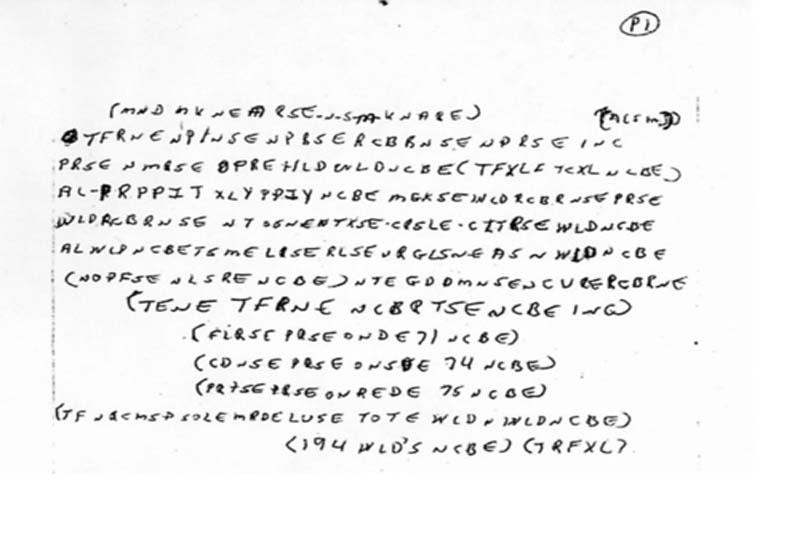 P1
(MND MKNEARSE-N-S-M-KNARE) (ACSM)
TFRNENPINSENPBSERCBBNSENPRSEINC
PRSENMRSEOPREHLDWLDNCBE(TFXLFTCXLNCBE)
AL-PRPPITXLYPPIYNCBEMGKSEWLDRCBRNSEPRSE
WLDRCBRNSENTSGNENTXSE-CRSLE-CITRSEWLDNCBE
ALWLPNCBETSMELRSERLSEURGLSNEASNWLDNCBE
(NOPFSENLSRENCBE)NTEGDDMNSENCURERCBRNE
(TENETFRNENCBRTSENCBEING)
(FIRSEPRSEONDE71NCBE)
(CDNSEPRSEONSDE74NCBE)
(PRTSEPRSEONREDE75NCBE)
(TFNQCMSPSOLEMRDELUSETOTEWLDNWLDNCBE)
(194WLD'SNCBE)(TRFXL)